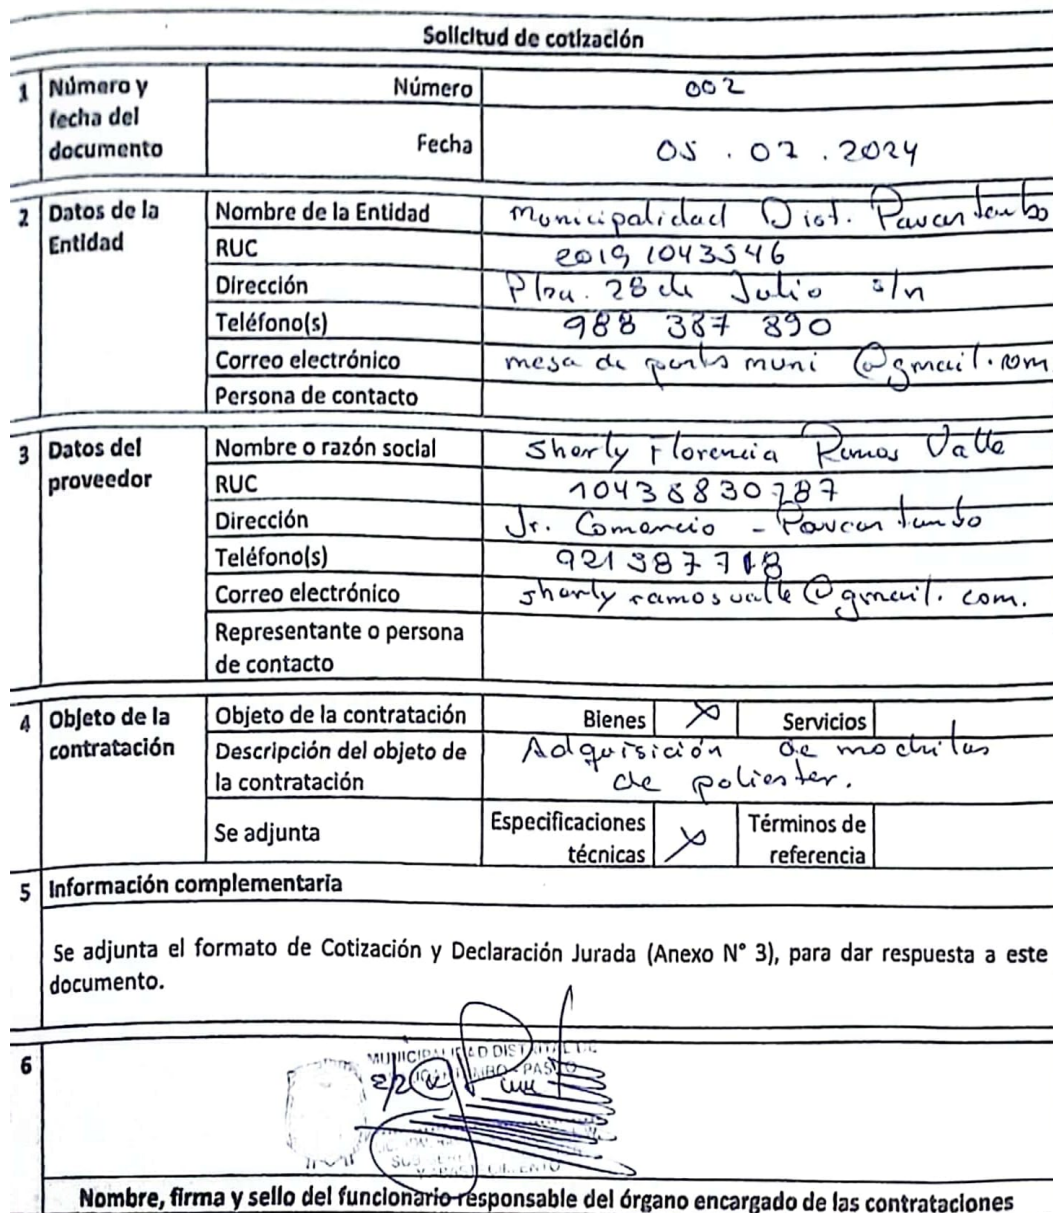 Solicitud de cotización
1 Número y fecha del documento
Número 002
Fecha 05 . 07 . 2024
2 Datos de la Entidad
Nombre de la Entidad Municipalidad Dist. Paucartambo
RUC 20191043546
Dirección Plza. 28 de Julio s/n
Teléfono(s) 988 387 890
Correo electrónico mesa de partes muni @gmail.com
Persona de contacto
3 Datos del proveedor
Nombre o razón social Sharly Florencia Ramos Valle
RUC
Dirección Jr. Comercio - Paucartambo
Teléfono(s)
Correo electrónico sharly ramos valle @gmail. com.
Representante o persona de contacto
4 Objeto de la contratación
Objeto de la contratación Bienes X Servicios
Descripción del objeto de la contratación Adquisición de mochilas de poliester.
Se adjunta Especificaciones técnicas X Términos de referencia
5 Información complementaria
Se adjunta el formato de Cotización y Declaración Jurada (Anexo N° 3), para dar respuesta a este
documento.
6
MUNICIPALIDAD DISTRITAL DE
Nombre, firma y sello del funcionario responsable del órgano encargado de las contrataciones